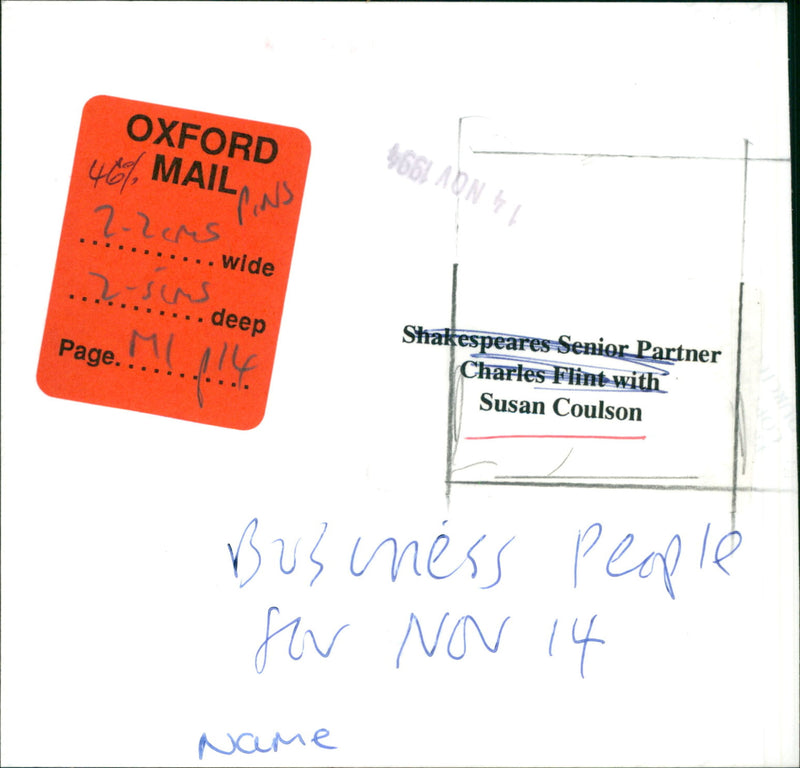 OXFORD
MAIL
46%
PINS
2-2cms
............ wide
2-5cms
............ deep
Page MI p14
14 NOV 1994
Shakespeares Senior Partner
Charles Flint with
Susan Coulson
Business People
for NOV 14
Name